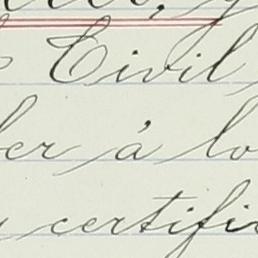 Civil
er á lo
certific